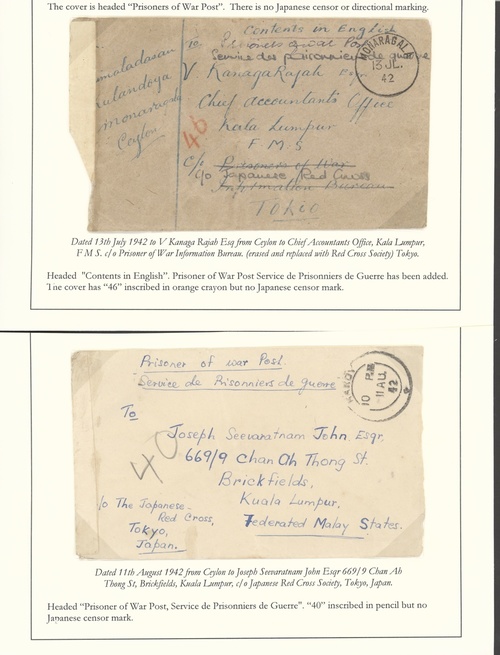 The cover is headed "Prisoners of War Post". There is no Japanese censor or directional marking.
Contents in English
To Prisoners of War Post
Service des prisonniers de guerre
V. KanagaRajah Esq.
Chief Accountants Office
Kala Lumpur
F M S.
46
c/o Prisoners of War
c/o Japanese, Red Cross
Information Bureau
TOKIO
Ceylon
13 JL.
42
Dated 13th July 1942 to V Kanaga Rajah Esq from Ceylon to Chief Accountants Office, Kala Lumpur,
F M S. c/o Prisoner of War Information Bureau. (erased and replaced with Red Cross Society) Tokyo.
Headed "Contents in English". Prisoner of War Post Service de Prisonniers de Guerre has been added.
The cover has "46" inscribed in orange crayon but no Japanese censor mark.
Prisoner of war Post.
Service de Prisonniers de guerre
KANDY
10 P.M
11 AU
42
To
Joseph Seevaratnam John Esqr.
669/9 Chan Ah Thong St.
Brickfields,
Kuala Lumpur.
Federated Malay States.
40
c/o The Japanese
Red Cross,
Tokyo,
Japan.
Dated 11th August 1942 from Ceylon to Joseph Seevaratnam John Esqr 669/9 Chan Ah
Thong St, Brickfields, Kuala Lumpur, c/o Japanese Red Cross Society, Tokyo, Japan.
Headed "Prisoner of War Post, Service de Prisonniers de Guerre". "40" inscribed in pencil but no
Japanese censor mark.